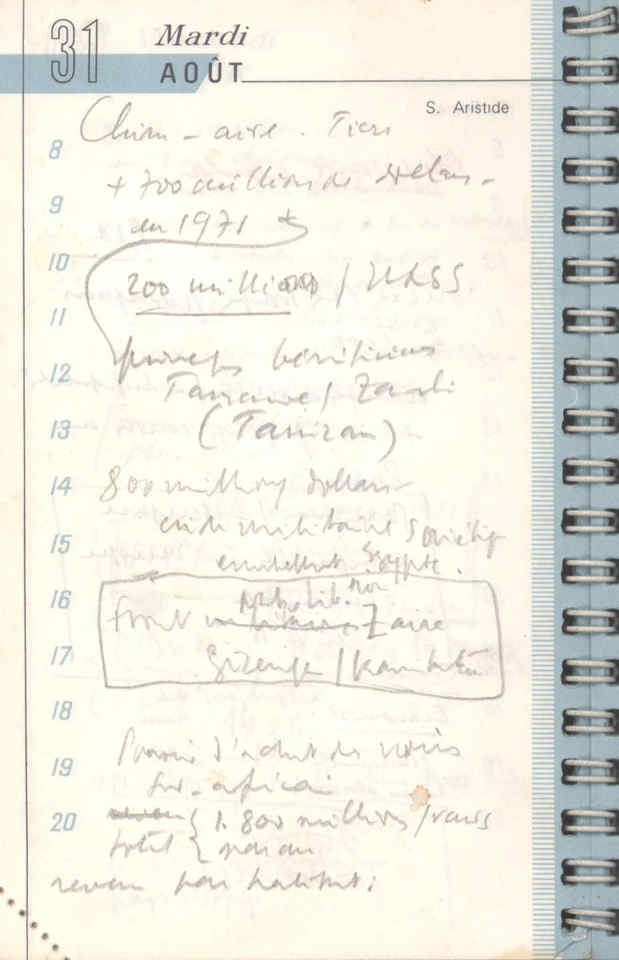 31 Mardi
AOÛT
S. Aristide
Chine - aide. Tiers
8
+ 700 millions de dollars
9
en 1971 *
10
200 millions / URSS
11
12
Tanzanie / Zambie
13
(Tanzam)
14
800 millions dollars
aide militaire soviétique
15
Egypte.
16
front Zaire
17
Gizenga /
18
Pouvoir d'achat des noirs
19
sud-africain
20
{ 1.800 millions / rands
total { par an
revenu par habitant :